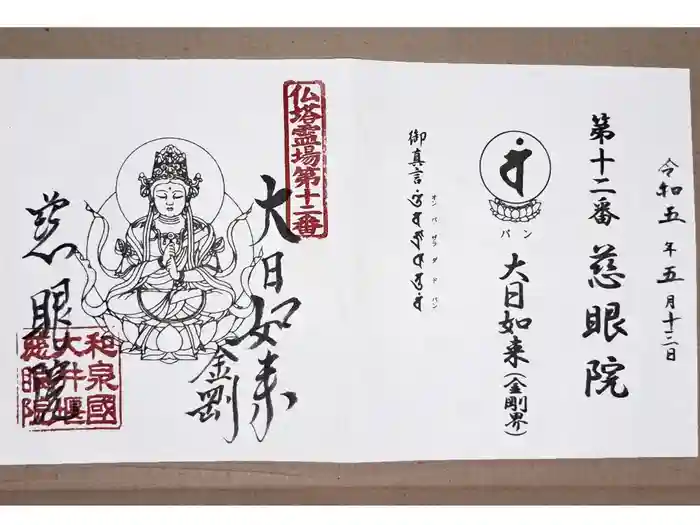 令和五年五月十三日
第十二番 慈眼院
バン
大日如来(金剛界)
御真言
オン バザラ ダド バン
仏塔霊場第十二番
大日如来
金剛
慈眼院
和泉國
大井堰
慈眼院